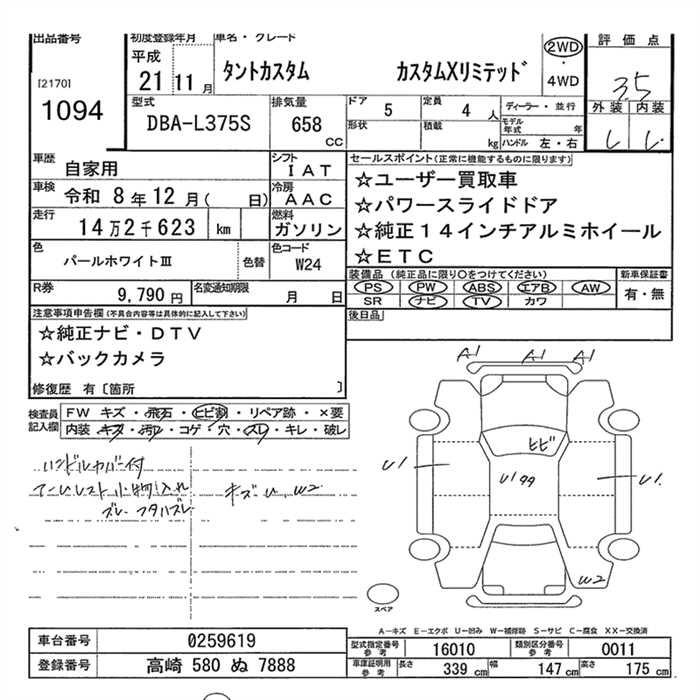 出品番号 初度登録年月 車名・グレード 2WD 評価点
[2170] 平成 タントカスタム カスタムXリミテッド ・ 3.5
1094 21 11 月 4WD 外装 内装
型式 排気量 ドア 5 定員 4 人 ディーラー・並行
DBA-L375S 658 cc 形状 積載 kg モデル年式 年
ハンドル 左・右
車歴 自家用 シフト IAT セールスポイント(正常に機能するものに限ります)
車検 令和 8年12月( 日) 冷房 AAC ☆ユーザー買取車
走行 14万2千623 km 燃料 ガソリン ☆パワースライドドア
☆純正14インチアルミホイール
色 パールホワイトⅢ 色替 色コード W24 ☆ETC
装備品(純正品に限り○をつけてください) 新車保証書
R券 9,790円 名変通知期限 月 日 PS ・ PW ・ ABS ・ エアB ・ AW 有・無
SR ・ ナビ ・ TV ・ カワ ・
注意事項申告欄(不具合内容等は具体的に記入して下さい) 後日品
☆純正ナビ・DTV
☆バックカメラ
修復歴 有〔箇所 〕
A1 A1 A1
検査員記入欄 FW キズ・飛石・ヒビ割・リペア跡・×要
内装・キズ・汚れ・コゲ・穴・スレ・キレ・破レ
ヒビ
ハンドルカバー付
U1 U199 U1.
アームレスト小物入れ キズ U. W2
ズレ フタハズレ
W2
スペア
A―キズ E―エクボ U―凹み W―補修跡 S―サビ C―腐食 XX―交換済
車台番号 0259619 型式指定番号参考 16010 類別区分番号参考 0011
登録番号 高崎 580 ぬ 7888 車庫証明用参考 長さ 339 cm 幅 147 cm 高さ 175 cm